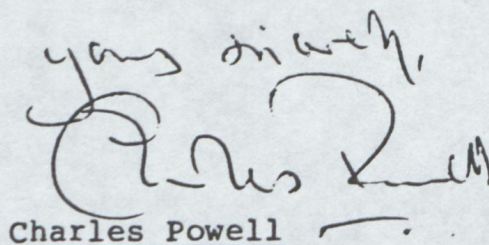 Yours sincerely,
Charles Powell
Charles Powell